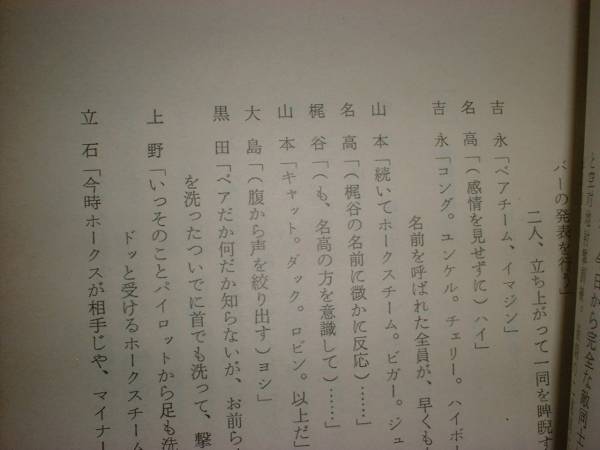 今日から完全な敵同士
バーの発表を行う」
二人、立ち上がって一同を睥睨す
吉永「ベアチーム、イマジン」
名高「（感情を見せずに）ハイ」
吉永「コング。ユンケル。チェリー。ハイボー
名前を呼ばれた全員が、早くも
山本「続いてホークスチーム。ビガー。ジュ
名高「（梶谷の名前に微かに反応）……」
梶谷「（も、名高の方を意識して）……」
山本「キャット。ダック。ロビン。以上だ」
大島「（腹から声を絞り出す）ヨシ」
黒田「ベアだか何だか知らないが、お前ら
を洗ったついでに首でも洗って、撃
上野「いっそのことパイロットから足も洗
ドッと受けるホークスチーム
立石「今時ホークスが相手じゃ、マイナー